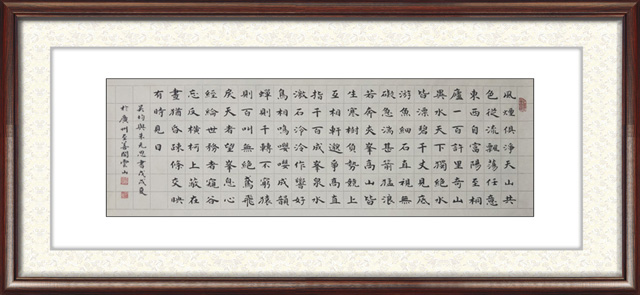 風煙俱淨天山共
色從流飄蕩任意
東西自富陽至桐
廬一百許里奇山
異水天下獨絕水
皆漂碧千丈見底
游魚細石直視無
礙急湍甚箭猛浪
若奔夾峯高山皆
生寒樹負勢競上
互相軒邈爭高直
指千百成峯泉水
激石泠泠作響好
鳥相鳴嚶嚶成韻
蟬則千轉不窮猿
則百叫無絕鳶飛
戾天者望峯息心
經綸世務者窺谷
忘反橫柯上蔽在
晝猶昏疎條交映
有時見日
吳均與朱元思書戊戌夏
於廣州至善閣雲山